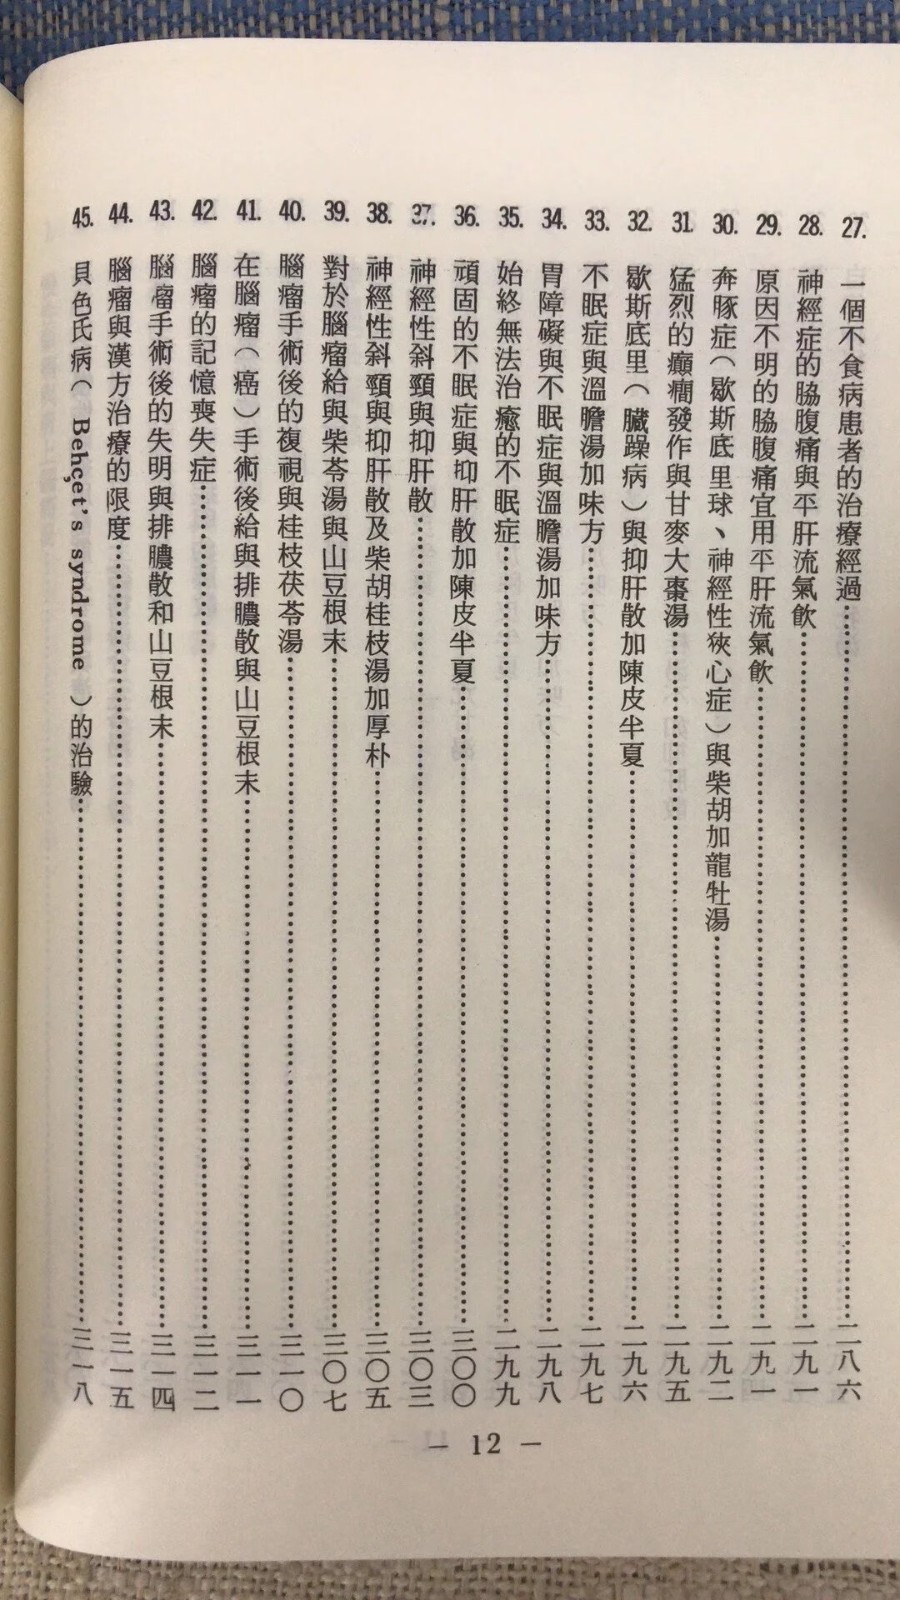 27. 一個不食病患者的治療經過……二八六
28. 神經症的脇腹痛與平肝流氣飲……二九一
29. 原因不明的脇腹痛宜用平肝流氣飲……二九一
30. 奔豚症(歇斯底里球、神經性狹心症)與柴胡加龍牡湯……二九二
31. 猛烈的癲癇發作與甘麥大棗湯……二九五
32. 歇斯底里(臟躁病)與抑肝散加陳皮半夏……二九六
33. 不眠症與溫膽湯加味方……二九七
34. 胃障礙與不眠症與溫膽湯加味方……二九八
35. 始終無法治癒的不眠症……二九九
36. 頑固的不眠症與抑肝散加陳皮半夏……三〇〇
37. 神經性斜頸與抑肝散……三〇三
38. 神經性斜頸與抑肝散及柴胡桂枝湯加厚朴……三〇五
39. 對於腦瘤給與柴苓湯與山豆根末……三〇七
40. 腦瘤手術後的複視與桂枝茯苓湯……三一〇
41. 在腦瘤(癌)手術後給與排膿散與山豆根末……三一一
42. 腦瘤的記憶喪失症……三一二
43. 腦瘤手術後的失明與排膿散和山豆根末……三一四
44. 腦瘤與漢方治療的限度……三一五
45. 貝色氏病( Behçet's syndrome )的治驗……三一八
— 12 —